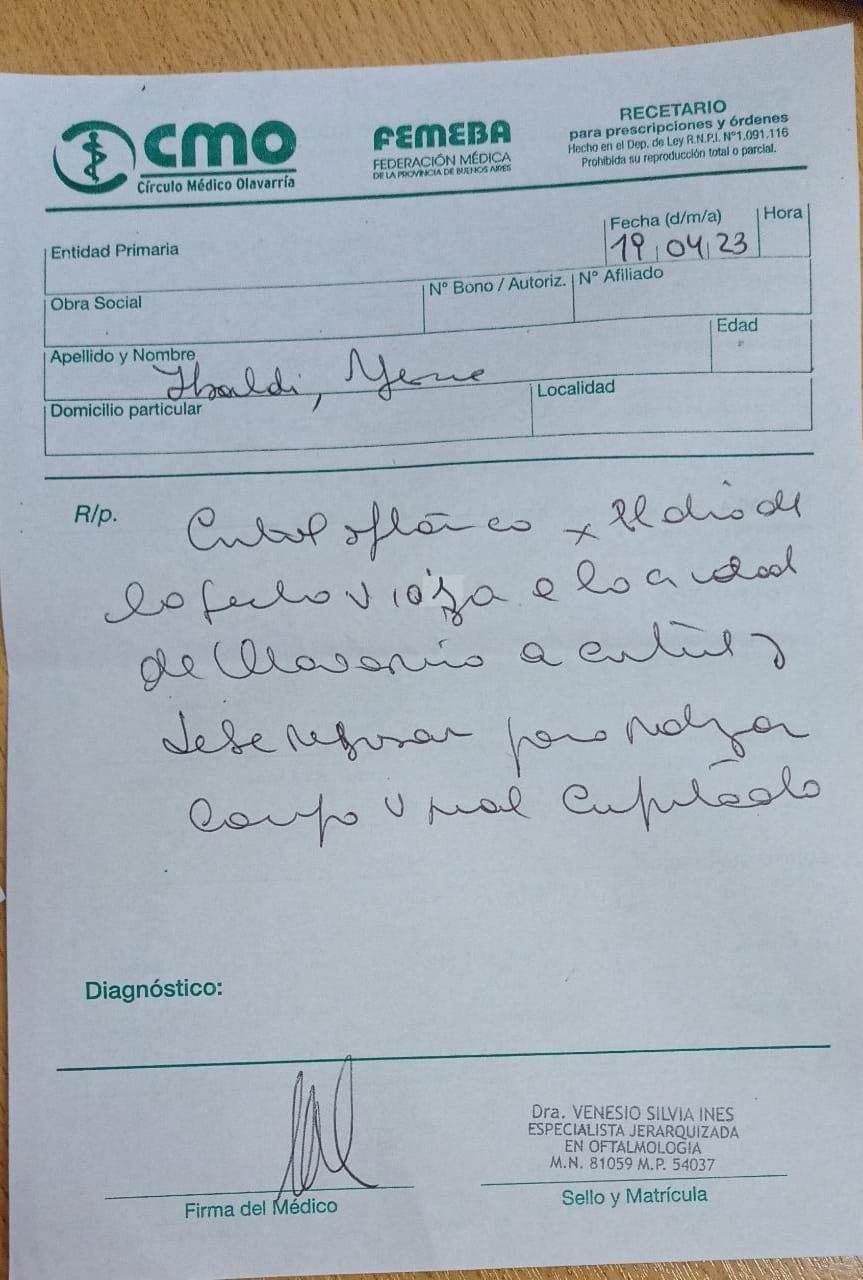 CMO
Círculo Médico Olavarría
FEMEBA
FEDERACIÓN MÉDICA
DE LA PROVINCIA DE BUENOS AIRES
RECETARIO
para prescripciones y órdenes
Hecho en el Dep. de Ley R.N.P.I. N°1.091.116
Prohibida su reproducción total o parcial.
Entidad Primaria
Fecha (d/m/a)
19 04 23
Hora
Obra Social
N° Bono / Autoriz.
N° Afiliado
Apellido y Nombre
Edad
Domicilio particular
Localidad
R/p.
el día de
la fecha viaja a la ciudad
de Olavarría a control y
debe regresar para realizar
campo visual computado
Diagnóstico:
Firma del Médico
Dra. VENESIO SILVIA INES
ESPECIALISTA JERARQUIZADA
EN OFTALMOLOGIA
M.N. 81059 M.P. 54037
Sello y Matrícula